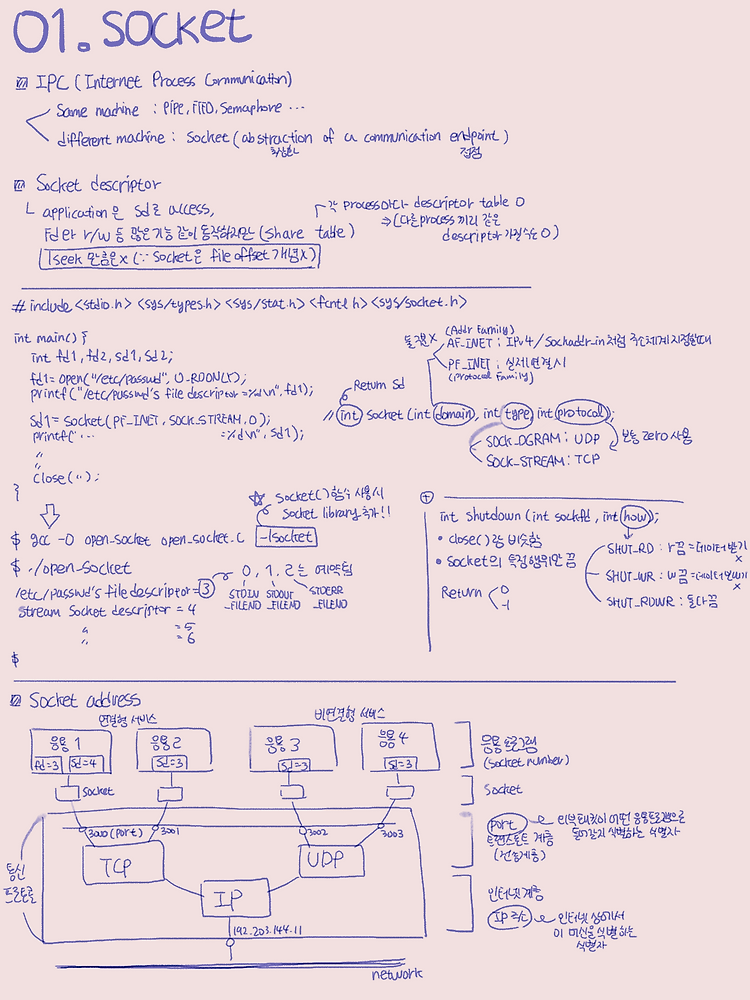 01. socket
IPC (Internet Process Communication)
Same machine : PIPE, FIFO, Semaphore ...
different machine : Socket (abstraction of a communication endpoint)
추상화
접점
Socket descriptor
application은 sd로 access,
fd와 r/w 등 많은 기능 같이 동작하지만 (share table)
lseek 만큼은 x (∵ Socket은 file offset 개념 x)
각 process마다 descriptor table 0
⇒ (다른 process 끼리 같은
descriptor 가질 수는 0)
# include <stdio.h> <sys/types.h> <sys/stat.h> <fcntl.h> <sys/socket.h>
int main() {
int fd1, fd2, sd1, sd2;
fd1 = open("/etc/passwd", O_RDONLY);
printf("/etc/passwd's file descriptor = %d\n", fd1);
sd1 = Socket(PF_INET, SOCK_STREAM, 0);
printf(" ... = %d\n", sd1);
"
"
close(");
}
(Addr Family)
AF_INET ; IPv4 / Sockaddr_in처럼 주소체계 지정할때
PF_INET ; 실제 연결시
(protocol Family)
Return sd
// int Socket (int domain, int type int protocol);
SOCK_DGRAM : UDP
SOCK_STREAM : TCP
보통 zero 사용
$ gcc -o open_socket open_socket.c -lsocket
☆ Socket() 함수 사용시
Socket library 추가!!
$ ./open_socket
/etc/passwd's file descriptor = 3
0, 1, 2는 예약됨
STDIN _FILENO
STDOUT _FILENO
STDERR _FILENO
stream Socket descriptor = 4
" = 5
" = 6
$
+
int shutdown (int sockfd, int how);
• close()랑 비슷함
• Socket의 특정행위만 끔
Return < 0
-1
SHUT_RD : r끔 = 데이터 받기 x
SHUT_WR : w끔 = 데이터 보내기 x
SHUT_RDWR : 둘다 끔
Socket address
연결형 서비스
비연결형 서비스
응용 1
fd=3 sd=4
응용 2
sd=3
응용 3
sd=3
응용 4
sd=3
응용 프로그램
(socket number)
Socket
Socket
3000 (port)
3001
3002
3003
TCP
UDP
IP
통신
프로토콜
192.203.144.11
network
Port
트랜스포트 계층
(전송계층)
어떤 응용프로그램으로
들어갈지 식별하는 식별자
인터넷 계층
IP 주소
인터넷 상에서
이 머신을 식별하는
식별자